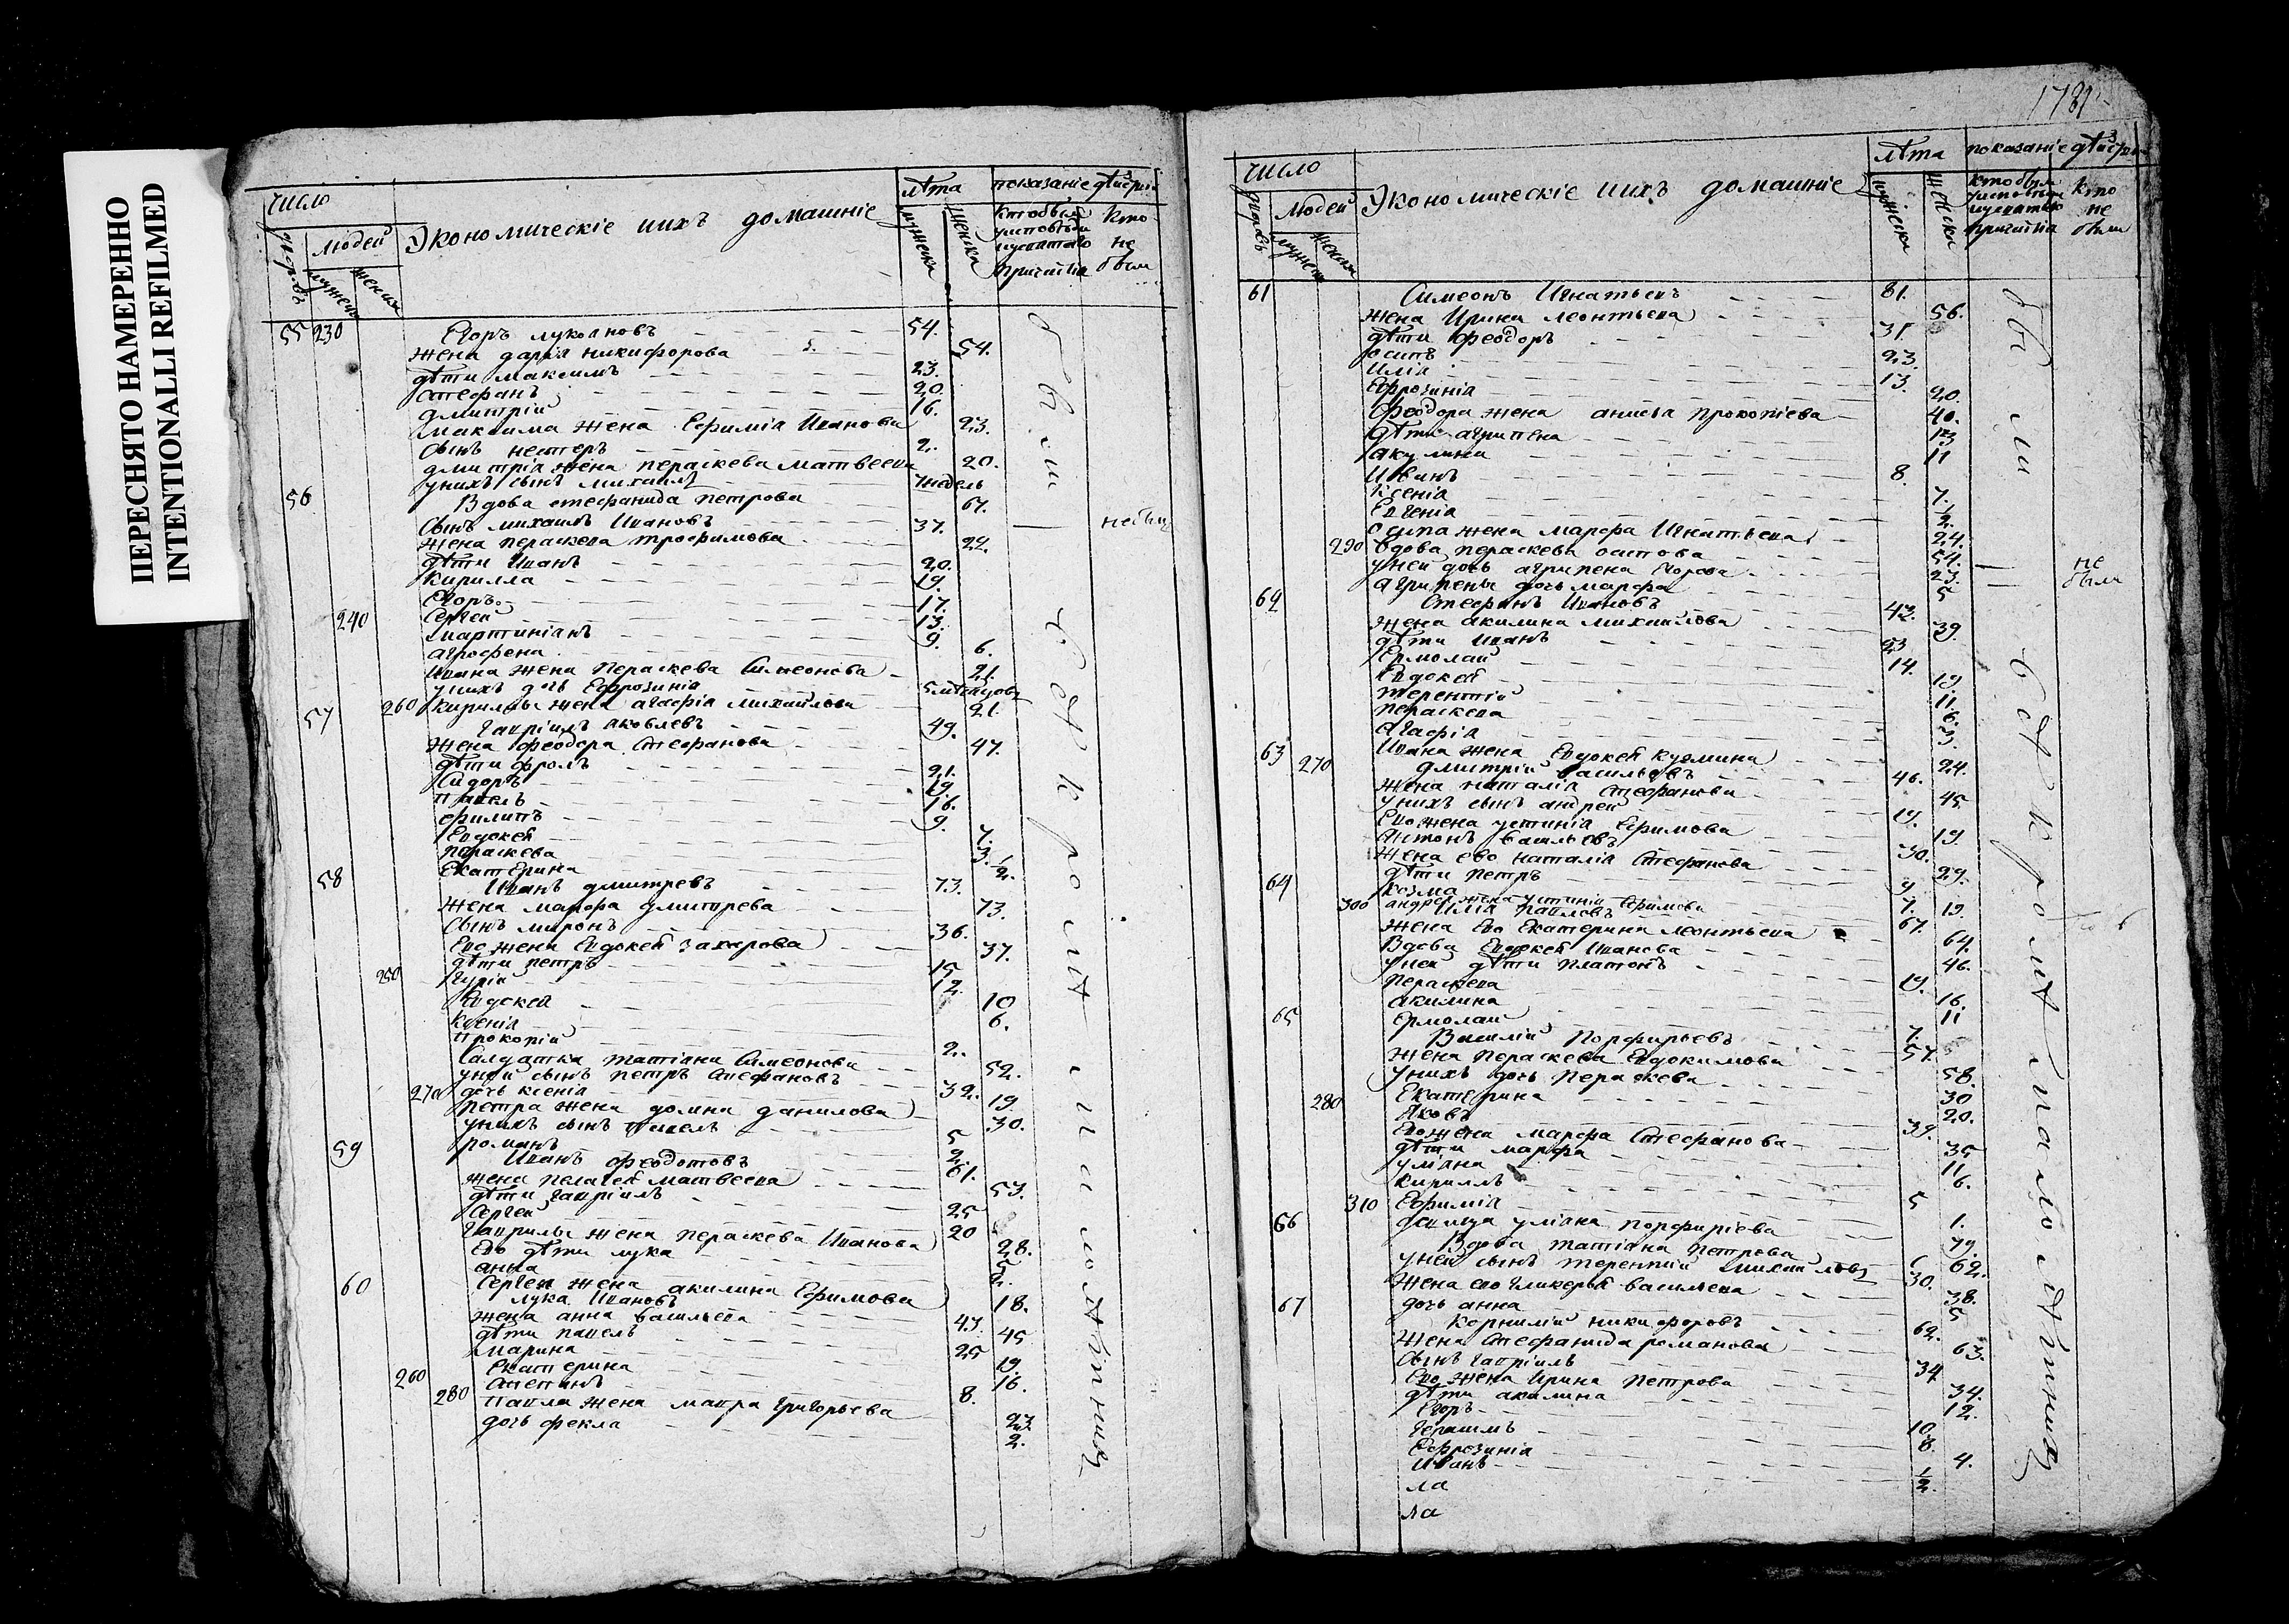 ПЕРЕСНЯТО НАМЕРЕННО
INTENTIONALLI REFILMED
число
дворовъ
людей
мужеска
женска
Экономическіе иихъ домашніе
лѣта
мужеска
женска
показаніе дѣйствія
кто былъ уисповѣди исвятаго причастія
кто не были
55 230 Егоръ лукояновъ 54.
жена дарія никифорова 54.
дѣти максимъ 23.
стефанъ 20.
дмитрій 16.
максима жена Ефимія Иванова 23.
сынъ нестеръ 2.
дмитрія жена параскева матвеева 20.
унихъ сынъ михаилъ 7 недель
56 Вдова стефанида петрова 67. небыла
сынъ михаилъ Ивановъ 37.
жена параскева трофимова
дѣти Иванъ 20.
кирилла 19.
Егоръ 17.
240 Сергей 13.
мартиніанъ 9.
агрофена 6.
Ивана жена параскева Симеонова 21.
унихъ дочь Ефрозинія 5 мѣсяцовъ
260 кириллы жена агафія михайлова 21.
57 гавріилъ яковлевъ 49.
жена феодора стефанова 47.
дѣти фролъ 21.
Сидоръ 19.
павелъ 16.
филипъ 9.
Евдокея 7.
параскева 3.
Екатерина 1/2.
58 Иванъ дмитревъ 73.
жена марфа дмитрева 73.
сынъ миронъ 36.
Его жена Евдокея захарова 37.
дѣти петръ 15
250 гурій 12.
Евдокея 10
ксенія 6.
прокопій 2.
Салдатка татіана Симеонова 52.
уней сынъ петръ стефановъ 32.
270 дочь ксенія 19.
петра жена домна данилова 30.
унихъ сынъ павелъ 5
романъ 2.
59 Иванъ феодотовъ 61.
жена пелагея матвеева 53.
дѣти гавріилъ 25
Сергей 20
гаврилы жена параскева Иванова 28.
Его дѣти лука 5
анна 2.
Сергея жена акилина Ефимова 18.
60 лука Ивановъ 47.
жена анна васильева 45
дѣти павелъ 25
марина 19.
260 Екатерина 16.
8.
280 павла жена мавра григорьева 23.
дочь фекла 2.
были
все кроме
1781
число
дворовъ
людей
мужеска
женска
Экономическіе иихъ домашніе
лѣта
мужеска
женска
показаніе дѣйствія
кто былъ уисповѣди исвятаго причастія
кто не были
61 Симеонъ Игнатьевъ 81.
жена Ирина леонтьева 56.
дѣти феодоръ 31.
осипъ 23.
Илія 13.
Ефрозинія 20.
Феодора жена анисья прокопіева 40.
дѣти агрипена 13
акулина 11
Иванъ 8.
ксенія 7.
Евгенія 2.
осипа жена марфа Игнатьева 24.
290 вдова параскева осипова 54. не были
уней дочь агрипена Егорова 23.
агрипены дочь марфа 5
62 Стефанъ Ивановъ 43.
жена акилина михайлова 39.
дѣти иванъ 23
Ермолай 14.
Евдокея 19
терентій 11.
параскева 6.
агафія 3.
Ивана жена Евдокея кузмина 24.
63 270 дмитрій васильевъ 46.
жена наталія стефанова 45
унихъ сынъ андрей 19.
Его жена устинія Ефимова 19.
антонъ васильевъ 30.
жена ево наталія стефанова 29.
дѣти петръ 9
козма 7.
300 андрея жена устинія Ефимова 19.
64 Илія павловъ 67.
жена Его Екатерина леонтьева 64.
Вдова Евдокея Иванова 46.
уней дѣти платонъ 19.
параскева 16.
акилина 11
Ермолай 7.
65 Василій Порфирьевъ 57.
жена параскева Евдокимова 58.
унихъ дочь параскева 30
Екатерина 20.
280 Яковъ 39.
Его жена марфа Стефанова 35
дѣти марфа 11
уліана 6.
кириллъ 5
310 Ефимія 1.
девица уліана порфиріева 79.
66 Вдова татіана петрова 62.
уней сынъ терентій михайловъ 30.
жена его гликерья васильева 38.
дочь анна 5
67 корнилій никифоровъ 62.
жена Стефанида романова 63.
сынъ гавріилъ 34
Его жена Ирина петрова 34.
дѣти акилина 12.
Егоръ 10.
герасимъ 8.
Ефрозинія 4.
Иванъ 1/2.
ла
ла
были
все кроме малолѣтныхъ